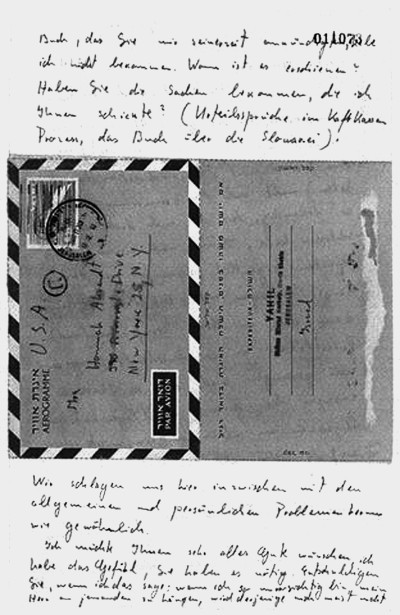 011073
Buch, das Sie mir seinerzeit ankündigten, habe
ich nicht bekommen. Wann ist es erschienen?
Haben Sie die Sachen bekommen, die ich
Ihnen schickte? (Urteilssprüche im Kafr Kassem
Prozess, das Buch über die Slowakei).
U.S.A
Mrs Hannah
Riverside Drive
New York 25, N.Y.
איגרת אוויר
AEROGRAMME
דואר אוויר
PAR AVION
YAHIL
JERUSALEM
Israel
Wir schlagen uns hier inzwischen mit den
allgemeinen und persönlichen Problemen herum
wie gewöhnlich.
Ich möchte Ihnen sehr alles Gute wünschen, ich
habe das Gefühl, Sie haben es nötig. Entschuldigen
Sie, wenn ich das sage: wenn ich so unvorsichtig bin mein
Herz an jemanden zu hängen, wird derjenige mich meist nicht